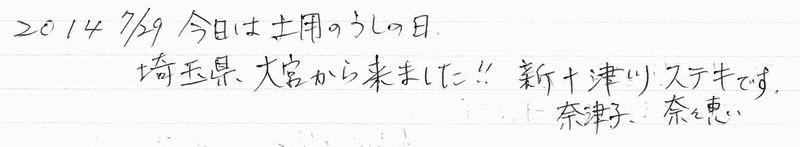 2014 7/29 今日は土用のうしの日.
埼玉県、大宮から来ました!! 新十津川 ステキです.
奈津子、奈々恵